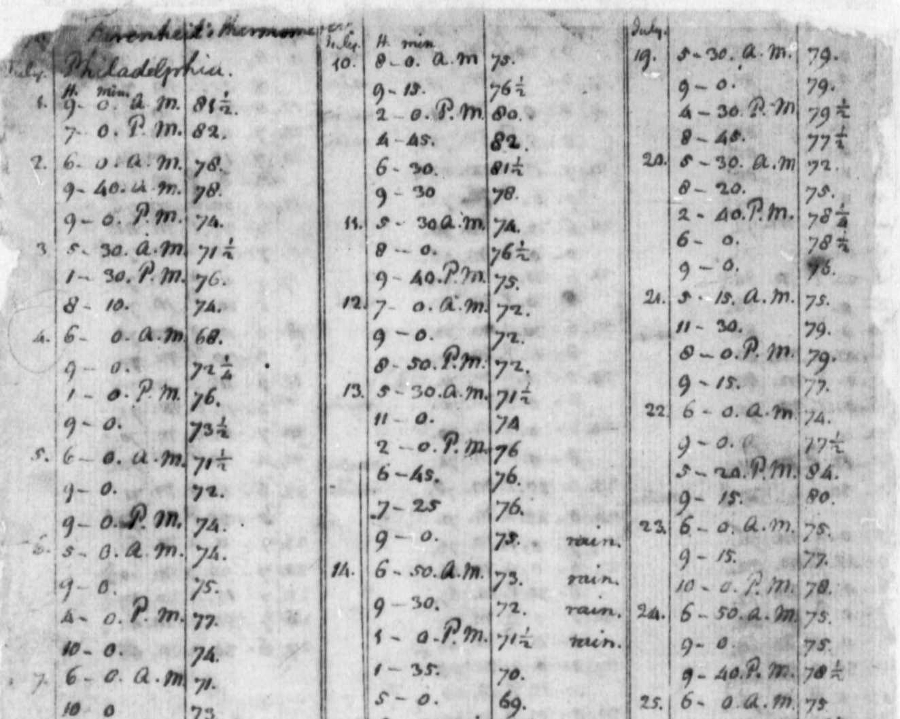 Farenheit's thermometer.
July. Philadelphia.
H. min.
1. 9 - 0. A.M. 81½.
7 - 0. P.M. 82.
2. 6 - 0. A.M. 78.
9 - 40. A.M. 78.
9 - 0. P.M. 74.
3 5 - 30. A.M. 71½
1 - 30. P.M. 76.
8 - 10. 74.
4. 6 - 0. A.M. 68.
9 - 0. 72¼
1 - 0. P.M. 76.
9 - 0. 73½
5. 6 - 0. A.M. 71½
9 - 0. 72.
9 - 0. P.M. 74.
6. 5 - 0. A.M. 74.
9 - 0. 75.
4 - 0. P.M. 77.
10 - 0. 74.
7. 6 - 0. A.M. 71.
10 - 0 73
July. H. min.
10. 8 - 0. A.M 75.
9 - 15. 76½
2 - 0. P.M. 80.
4 - 45. 82.
6 - 30 81½
9 - 30 78.
11. 5 - 30 A.M. 74.
8 - 0. 76½
9 - 40. P.M. 75.
12. 7 - 0. A.M. 72.
9 - 0. 72.
8 - 50. P.M. 72.
13. 5 - 30. A.M. 71½
11 - 0. 74
2 - 0. P.M. 76
6 - 45. 76.
7 - 25 76.
9 - 0. 75. rain.
14. 6 - 50. A.M. 73. rain.
9 - 30. 72. rain.
1 - 0. P.M. 71½ rain.
1 - 35. 70.
5 - 0. 69.
July.
19. 5 - 30. A.M. 79.
9 - 0. 79.
4 - 30. P.M. 79½
8 - 45. 77½
20. 5 - 30. A.M 72.
8 - 20. 75.
2 - 40. P.M. 78¼
6 - 0. 78½
9 - 0. 76.
21. 5 - 15. A.M. 75.
11 - 30. 79.
8 - 0. P.M. 79.
9 - 15. 77.
22. 6 - 0. A.M. 74.
9 - 0. 77½
5 - 20. P.M. 84.
9 - 15. 80.
23. 6 - 0. A.M. 75.
9 - 15. 77.
10 - 0. P.M. 78.
24. 6 - 50. A.M. 75.
9 - 0 75.
9 - 40. P.M. 78½
25. 6 - 0. A.M. 75